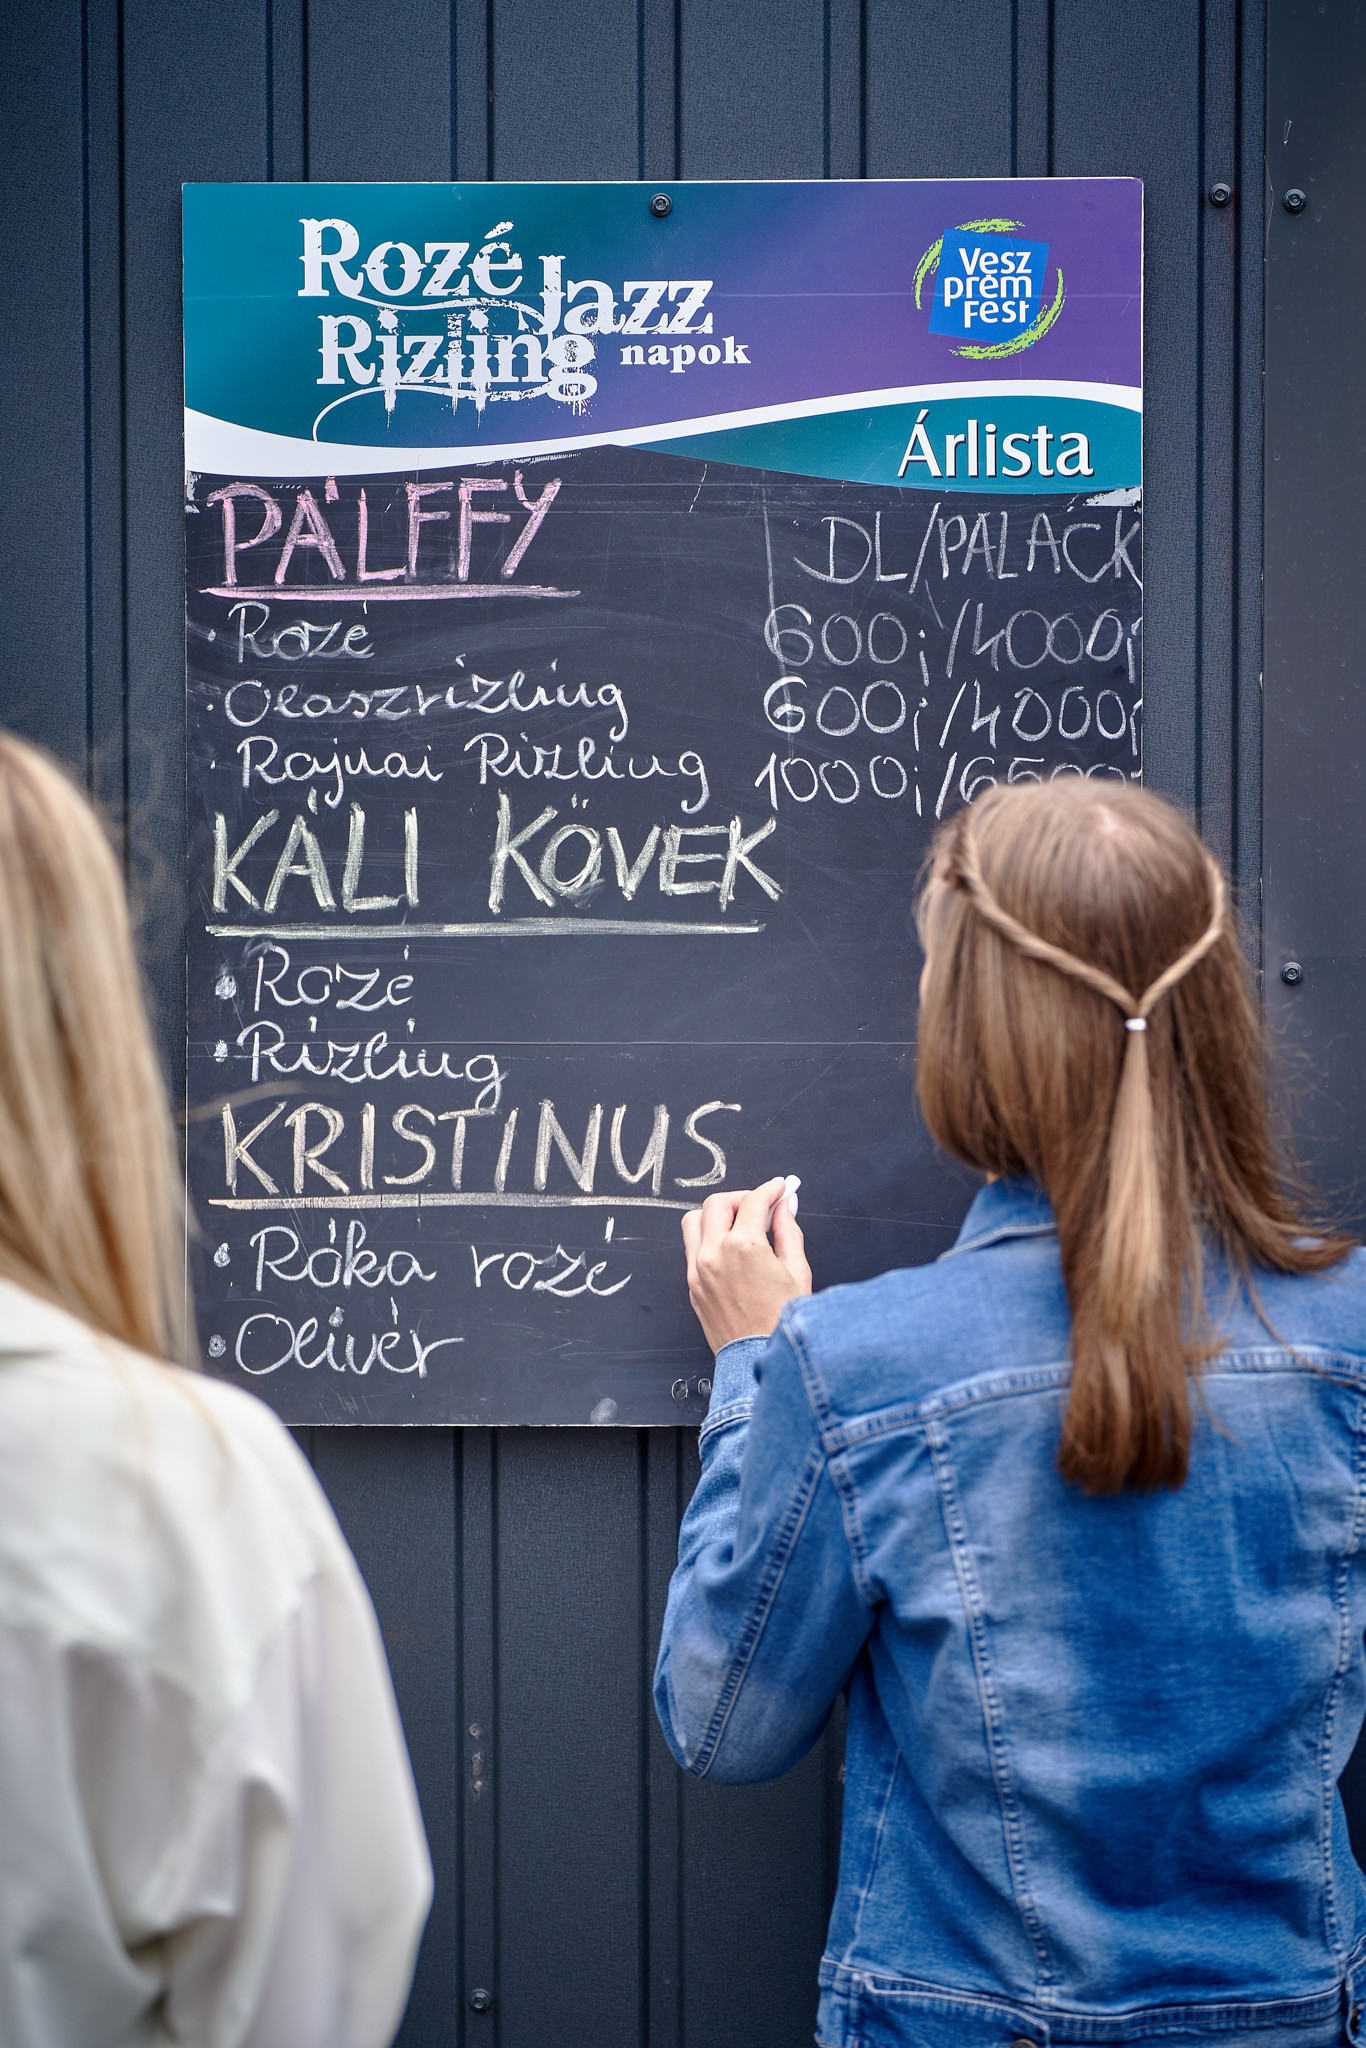 Rozé
Jazz
Rizling
napok
Vesz
prém
Fest
Árlista
PÁLFFY DL/PALACK
· Rozé 600,-/4000,-
· Olaszrizling 600,-/4000,-
· Rajnai Rizling 1000,-/6500,-
KÁLI KÖVEK
· Rozé
· Rizling
KRISTINUS
· Róka rozé
· Olivér